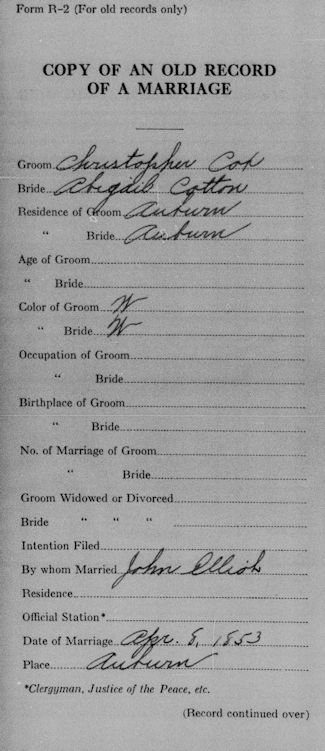 Form R-2 (For old records only)
COPY OF AN OLD RECORD
OF A MARRIAGE
Groom Christopher Cox
Bride Abigail Cotton
Residence of Groom Auburn
" Bride Auburn
Age of Groom
" Bride
Color of Groom W
" Bride W
Occupation of Groom
" Bride
Birthplace of Groom
" Bride
No. of Marriage of Groom
" Bride
Groom Widowed or Divorced
Bride " " "
Intention Filed
By whom Married John Elliot
Residence
Official Station*
Date of Marriage Apr. 8, 1853
Place Auburn
*Clergyman, Justice of the Peace, etc.
(Record continued over)